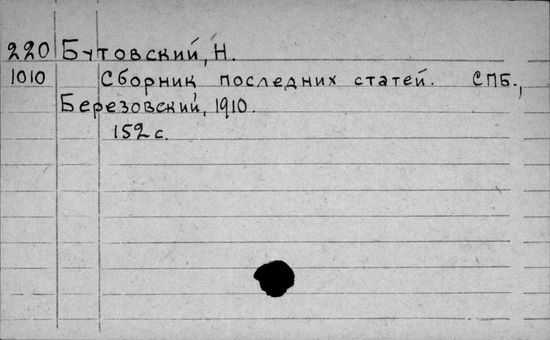 220 Бутовский, Н.
1010 Сборник последних статей. СПБ.,
Березовский, 1910.
152 с.